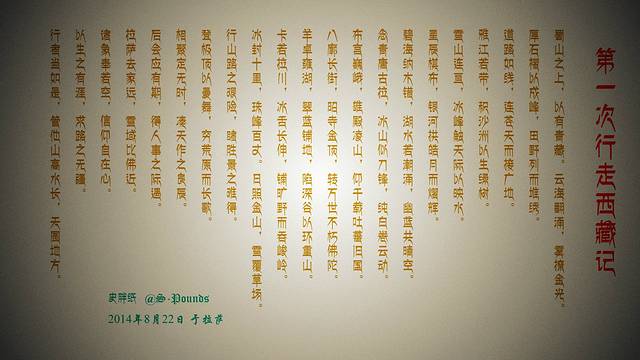 第一次行走西藏记
蜀山之上，以有青藏。云海翻涌，雾撩金光。
厚石襁以成峰，田野列而堆绣。
道路如线，连苍天而接广地。
雅江若带，积沙洲以生绿树。
雪山连亘，冰峰触天际以映水。
星辰棋布，银河拱皓月而耀辉。
碧海纳木错，湖水若潮涌，幽蓝共晴空。
念青唐古拉，冰山似刀锋，纯白卷云动。
布宫巍峨，雄殿凌山，仰千载吐蕃旧国。
八廓长街，昭寺金顶，转万世不朽佛陀。
羊卓雍湖，翠蓝铺地，陷深谷以环重山。
卡若拉川，冰舌长伸，铺旷野而吞峻岭。
冰封十里，珠峰百丈。日照金山，雪覆草场。
行山路之艰险，睹胜景之难得。
登极顶以曼舞，穷荒原而长歌。
相聚定无时，凑天作之良辰。
后会应有期，得人事之际遇。
拉萨去家远，雪域比佛近。
德象奉若空，信仰自在心。
以生之有涯，求路之无疆。
行者当如是，管他山高水长，天圆地方。
史胖纸 @S-Pounds
2014年8月22日 于拉萨